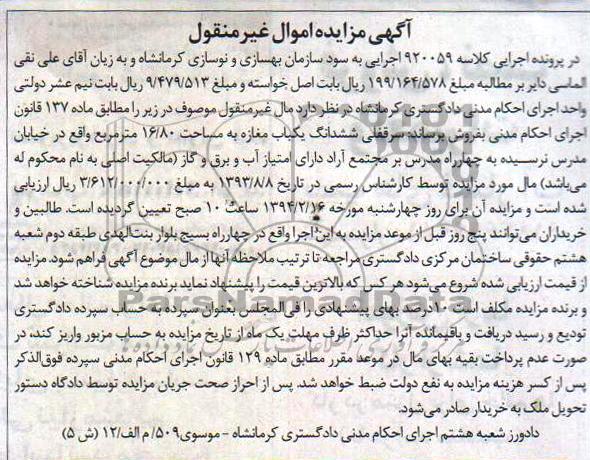 آگهی مزایده اموال غیر منقول
در پرونده اجرایی کلاسه ۹۲۰۰۵۹ اجرایی به سود سازمان بهسازی و نوسازی کرمانشاه و به زیان آقای علی نقی
الماسی دایر بر مطالبه مبلغ ۱۹۹/۱۶۴/۵۷۸ ریال بابت اصل خواسته و مبلغ ۹/۴۷۹/۵۱۳ ریال بابت نیم عشر دولتی
واحد اجرای احکام مدنی دادگستری کرمانشاه در نظر دارد مال غیرمنقول موصوف در زیر را مطابق ماده ۱۳۷ قانون
اجرای احکام مدنی بفروش برساند: سرقفلی ششدانگ یکباب مغازه به مساحت ۱۶/۸۰ مترمربع واقع در خیابان
مدرس نرسیده به چهارراه مدرس بر مجتمع آراد دارای امتیاز آب و برق و گاز (مالکیت اصلی به نام محکوم له
می‌باشد) مال مورد مزایده توسط کارشناس رسمی در تاریخ ۱۳۹۳/۸/۸ به مبلغ ۳/۶۱۲/۰۰۰/۰۰۰ ریال ارزیابی
شده است و مزایده آن برای روز چهارشنبه مورخه ۱۳۹۴/۲/۱۶ ساعت ۱۰ صبح تعیین گردیده است. طالبین و
خریداران می‌توانند پنج روز قبل از موعد مزایده به این اجرا واقع در چهارراه بسیج بلوار بنت‌الهدی طبقه دوم شعبه
هشتم حقوقی ساختمان مرکزی دادگستری مراجعه تا ترتیب ملاحظه آنها از مال موضوع آگهی فراهم شود. مزایده
از قیمت ارزیابی شده شروع می‌شود هر کس که بالاترین قیمت را پیشنهاد نماید برنده مزایده شناخته خواهد شد
و برنده مزایده مکلف است ۱۰درصد بهای پیشنهادی را فی‌المجلس بعنوان سپرده به حساب سپرده دادگستری
تودیع و رسید دریافت و باقیمانده آنرا حداکثر ظرف مهلت یک ماه از تاریخ مزایده به حساب مزبور واریز کند، در
صورت عدم پرداخت بقیه بهای مال در موعد مقرر مطابق ماده ۱۲۹ قانون اجرای احکام مدنی سپرده فوق‌الذکر
پس از کسر هزینه مزایده به نفع دولت ضبط خواهد شد. پس از احراز صحت جریان مزایده توسط دادگاه دستور
تحویل ملک به خریدار صادر می‌شود.
دادورز شعبه هشتم اجرای احکام مدنی دادگستری کرمانشاه - موسوی ۵۰۹/ م الف/۱۲ (ش ۵)
ParsNamadData